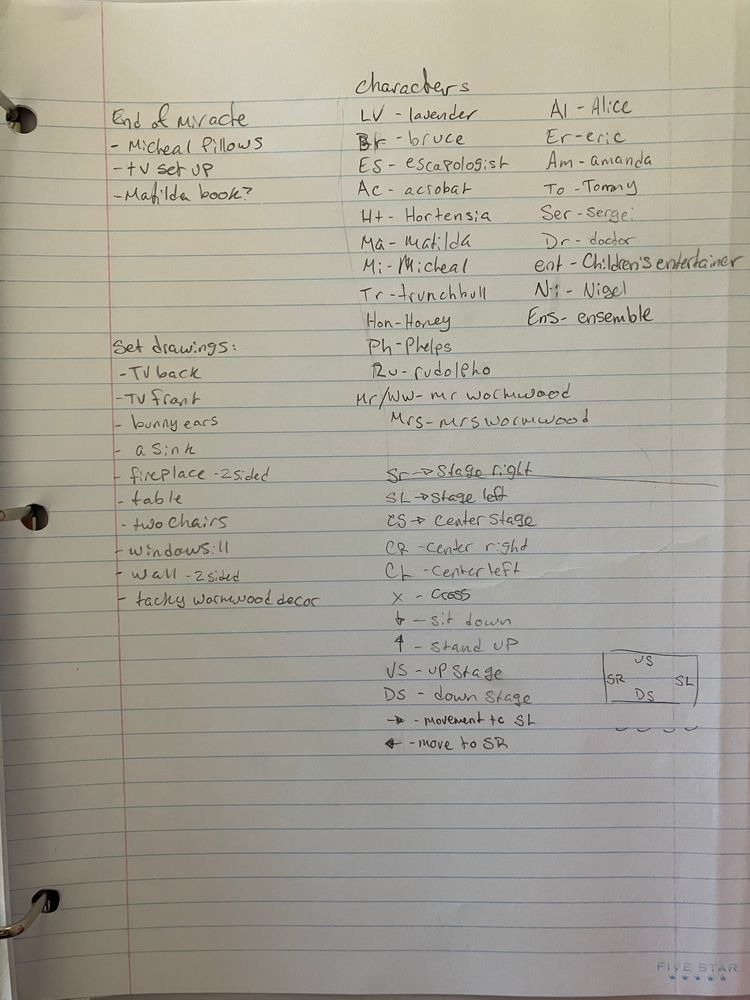 End of Miracle
- Micheal Pillows
- tv set up
- Matilda book?
Set drawings:
- TV back
- TV front
- bunny ears
- a sink
- fireplace - 2 sided
- table
- two chairs
- windowsill
- wall - 2 sided
- tacky wormwood decor
characters
LV - lavender
Br - bruce
ES - escapologist
Ac - acrobat
Ht - Hortensia
Ma - Matilda
Mi - Micheal
Tr - trunchbull
Hon - Honey
Ph - Phelps
Ru - rudolpho
Mr/WW - mr wormwood
Mrs - mrs wormwood
Al - Alice
Er - eric
Am - amanda
To - Tommy
Ser - sergei
Dr - doctor
ent - Children's entertainer
Ni - Nigel
Ens - ensemble
Sr → Stage right
SL → Stage left
CS → Center Stage
CR - center right
CL - center left
x - cross
↓ - sit down
↑ - stand up
US - up stage
DS - down stage
→ - movement to SL
← - move to SR
US
SR SL
DS
FIVE STAR